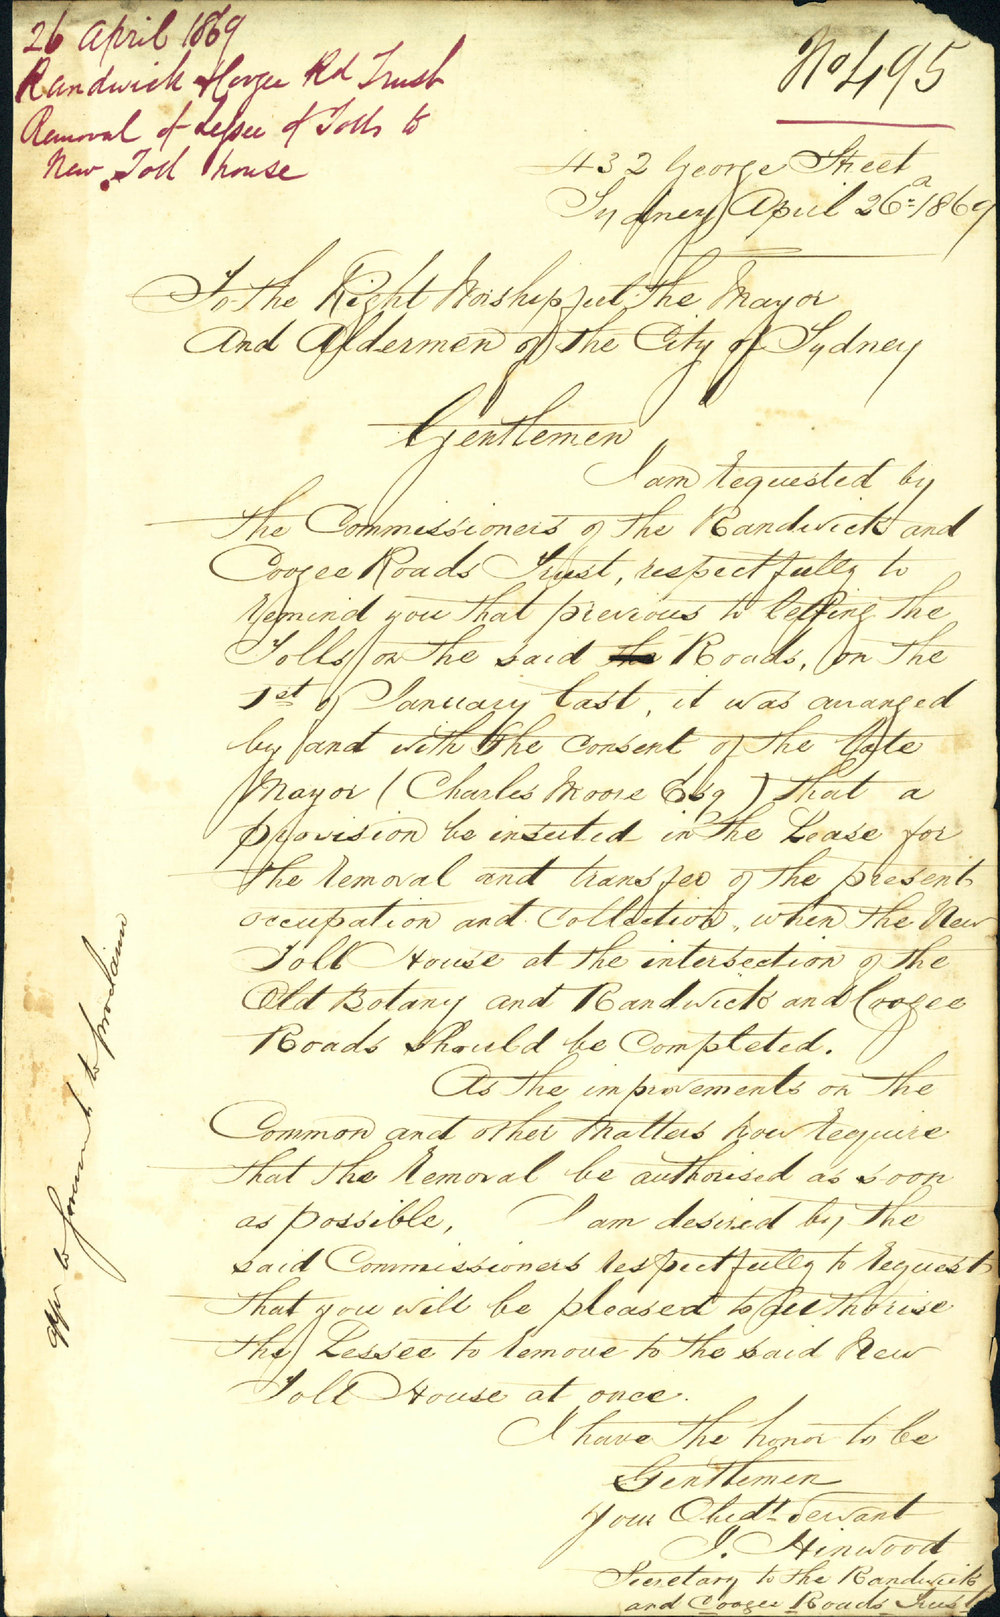 26 April 1869
Randwick & Coogee Rd Trust
Removal of Lessee of Tolls to
New Toll house
No 495
432 George Street
Sydney April 26th 1869
To the Right Worshipful the Mayor
And Aldermen of the City of Sydney
Gentlemen
I am requested by
the Commissioners of the Randwick and
Coogee Roads Trust, respectfully to
remind you that previous to letting the
Tolls on the said the Roads, on the
1st of January last, it was arranged
by and with the consent of the late
Mayor (Charles Moore Esq) that a
provision be inserted in the Lease for
the removal and transfer of the present
occupation and Collection, when the New
Toll House at the intersection of the
Old Botany and Randwick and Coogee
Roads should be Completed.
As the improvements on the
Common and other matters now require
that the removal be authorised as soon
as possible, I am desired by the
said Commissioners respectfully to request
that you will be pleased to authorise
the Lessee to remove to the said New
Toll House at once.
I have the honor to be
Gentlemen
Your Obedt Servant
J. Hinwood
Secretary to the Randwick
and Coogee Roads Trust
to Government to proclaim